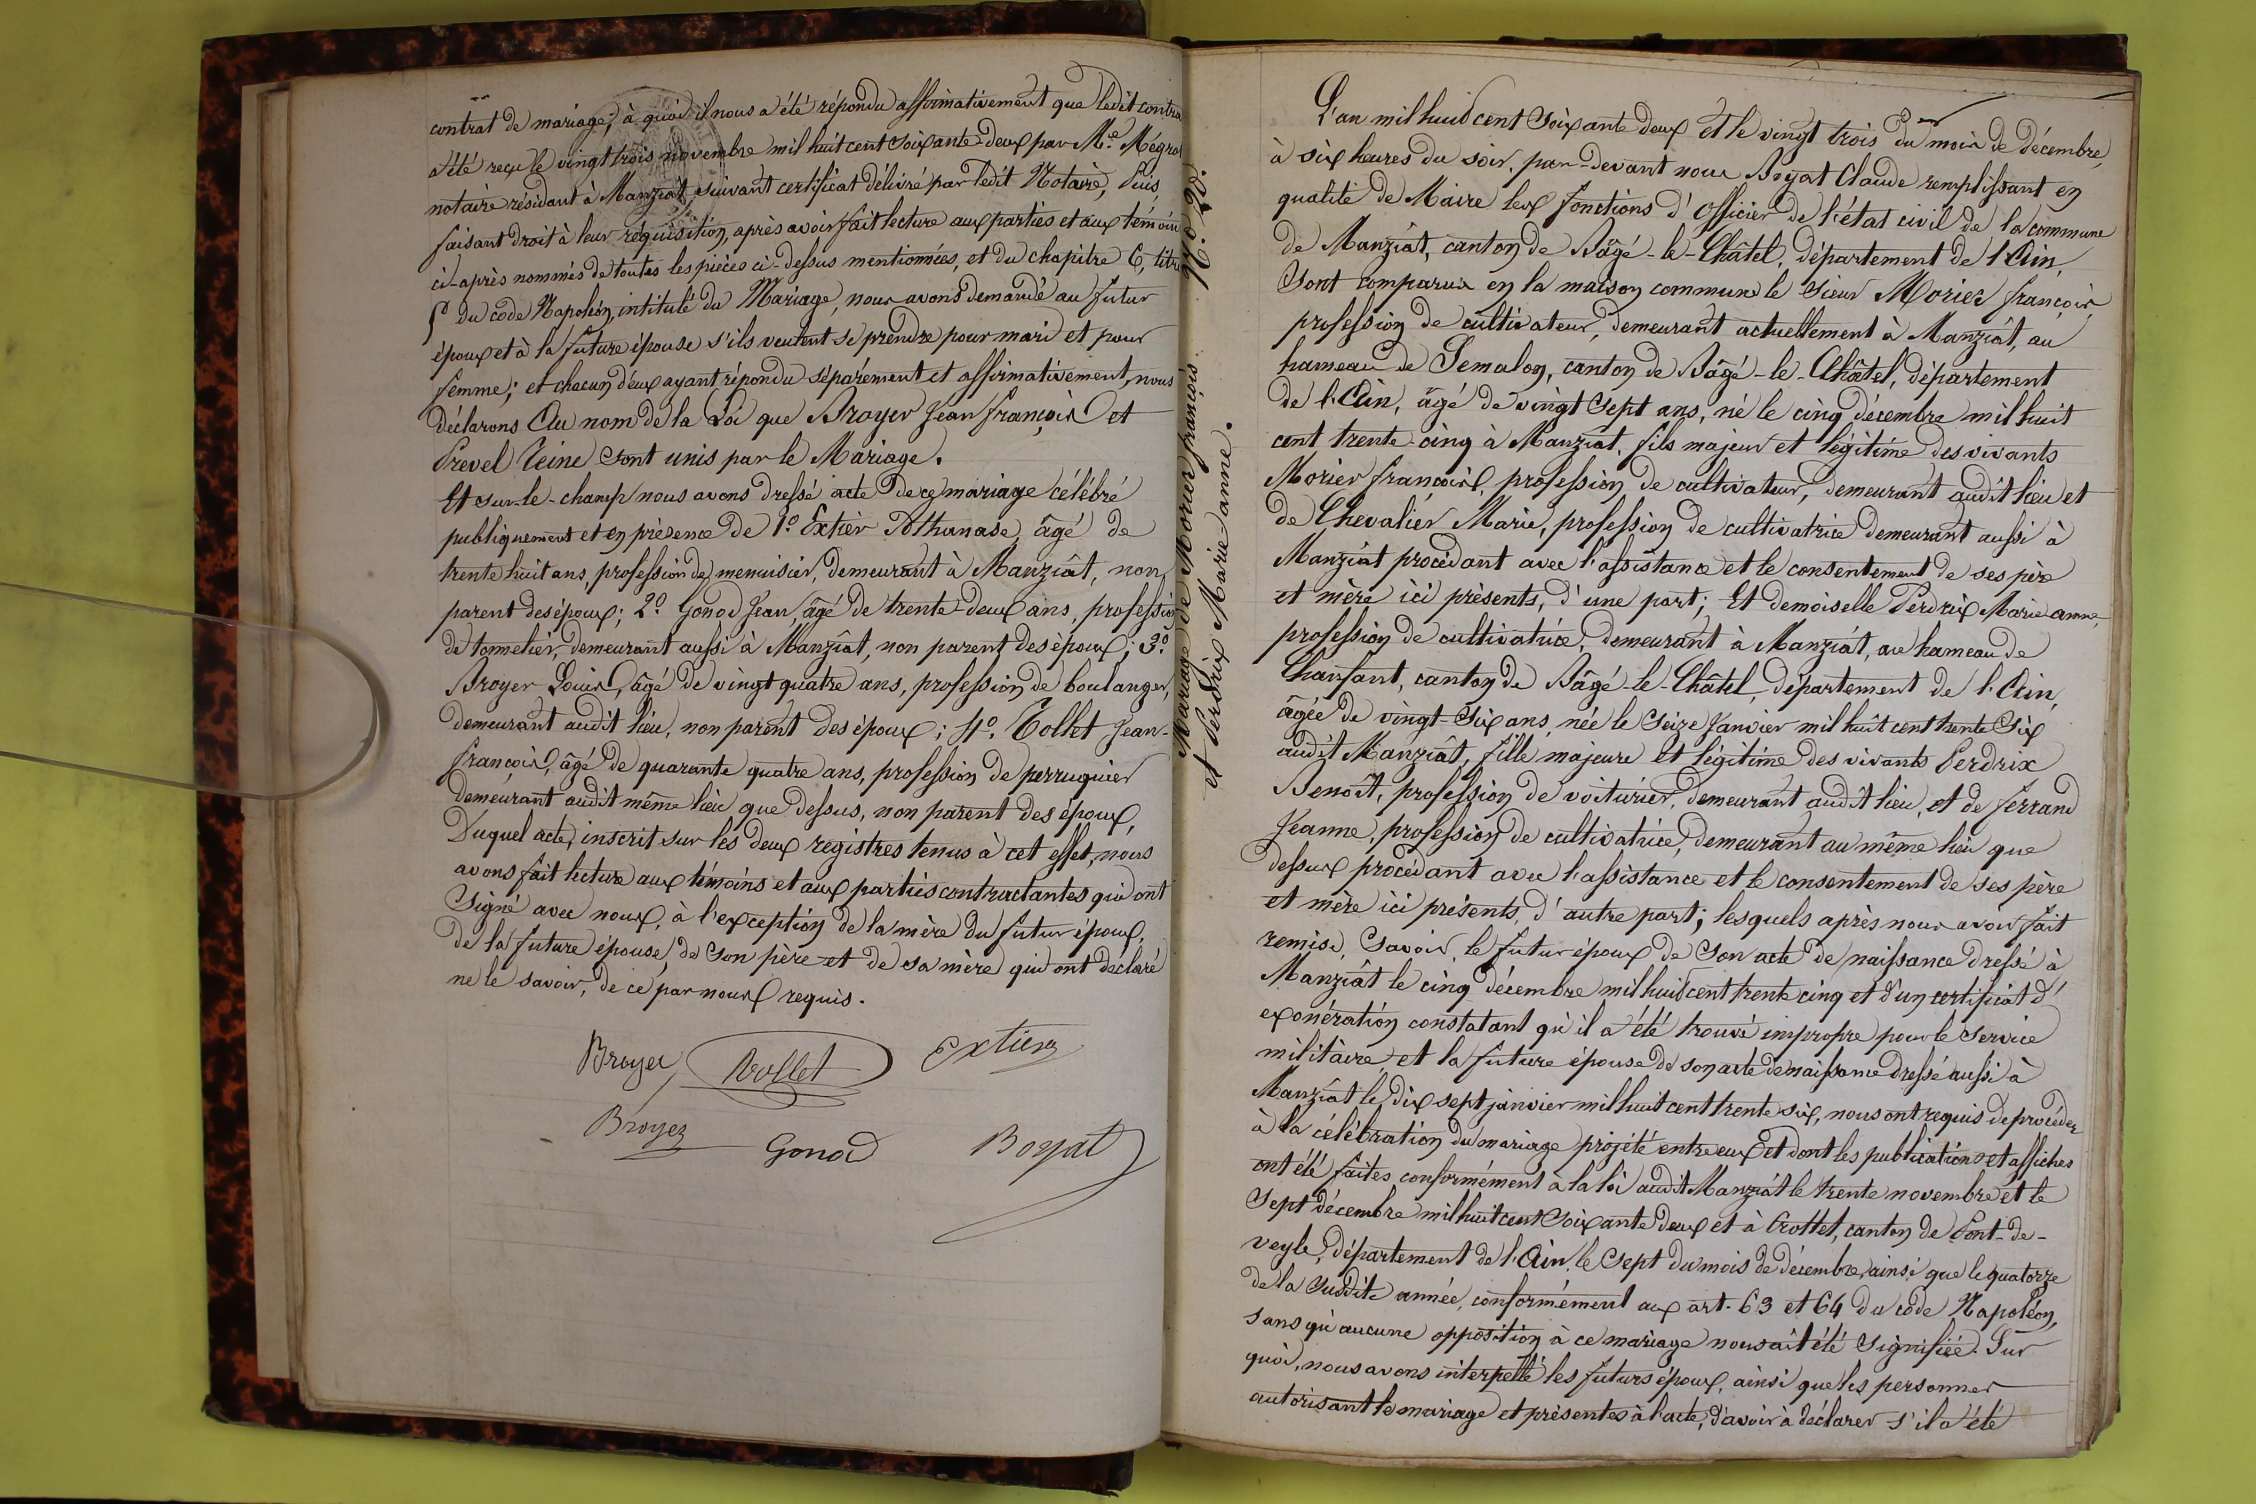 contrat de mariage; à quoi il nous a été répondu affirmativement que ledit contra
a été reçu le vingt trois novembre mil huit cent soixante-deux par Me. Mégro
notaire résidant à Manziat, suivant certificat délivré par ledit Notaire, Puis
faisant droit à leur réquisition, après avoir fait lecture aux parties et aux témoin
ci-après nommés de toutes les pièces ci-dessus mentionnées, et du chapitre 6, titre
5 du code Napoléon, intitulé du Mariage, nous avons demandé au futur
époux et à la future épouse s'ils veulent se prendre pour mari et pour
femme; et chacun d'eux ayant répondu séparément et affirmativement, nous
déclarons Au nom de la Loi que Broyer Jean François et
Prevel Reine sont unis par le Mariage.
Et sur-le-champ nous avons dressé acte de ce mariage célébré
publiquement et en présence de 1o. Extier Athanase, âgé de
trente huit ans, profession de menuisier, demeurant à Manziât, non
parent des époux; 2o. Gonod Jean, âgé de trente-deux ans, profession
de tonnelier, demeurant aussi à Manziât, non parent des époux; 3o.
Broyer Louis, âgé de vingt quatre ans, profession de boulanger,
demeurant audit lieu, non parent des époux; 4o. Tollet Jean-
François, âgé de quarante quatre ans, profession de perruquier
demeurant audit même lieu que dessus, non parent des époux,
Duquel acte, inscrit sur les deux registres tenus à cet effet, nous
avons fait lecture aux témoins et aux parties contractantes qui ont
signé avec nous, à l'exception de la mère du futur époux,
de la future épouse, de son père et de sa mère qui ont déclaré
ne le savoir, de ce par nous requis.
Broyer Tollet Extier
Broyer Gonod Boyat
No. 20.
Mariage de Morier François
et Perdrix Marie anne.
L'an mil huit cent soixante deux et le vingt trois du mois de décembre,
à six heures du soir, par-devant nous Boyat Claude remplissant en
qualité de Maire les fonctions d'Officier de l'état civil de la commune
de Manziât, canton de Bâgé-le-Châtel, département de l'Ain,
Sont comparus en la maison commune le sieur Morier françois,
profession de cultivateur, demeurant actuellement à Manziât, au
hameau de Semalon, canton de Bâgé-le-Châtel, département
de l'Ain, âgé de vingt sept ans, né le cinq décembre mil huit
cent trente-cinq à Manziat, fils majeur et légitime des vivants
Morier françois, profession de cultivateur, demeurant audit lieu et
de Chevalier Marie, profession de cultivatrice demeurant aussi à
Manziat procédant avec l'assistance et le consentement de ses père
et mère ici présents, d'une part; Et demoiselle Perdrix Marie anne,
profession de cultivatrice, demeurant à Manziât, au hameau de
Chanfant, canton de Bâgé-le-Châtel, département de l'Ain,
âgée de vingt-six ans, née le seize Janvier mil huit cent trente six
audit Manziât, fille majeure et légitime des vivants Perdrix
Benoît, profession de voiturier, demeurant audit lieu, et de Ferrand
Jeanne, profession de cultivatrice, demeurant au même lieu que
dessus procédant avec l'assistance et le consentement de ses père
et mère ici présents, d'autre part; lesquels après nous avoir fait
remise, savoir, le futur époux de son acte de naissance dressé à
Manziât le cinq décembre mil huit cent trente cinq et d'un certificat d'
exonération constatant qu'il a été trouvé impropre pour le service
militaire, et la future épouse de son acte de naissance dressé aussi à
Manziat le dix sept janvier mil huit cent trente six, nous ont requis de procéder
à la célébration du mariage projeté entre eux et dont les publications et affiches
ont été faites conformément à la loi audit Manziât le trente novembre et le
sept décembre mil huit cent soixante deux et à Crottet, canton de Pont-de-
veyle, département de l'Ain, le sept du mois de décembre, ainsi que le quatorze
de la susdite année, conformément aux art. 63 et 64 du code Napoléon,
sans qu'aucune opposition à ce mariage nous ait été signifiée. Sur
quoi, nous avons interpellé les futurs époux, ainsi que les personnes
autorisant le mariage et présentes à l'acte, d'avoir à déclarer s'il a été